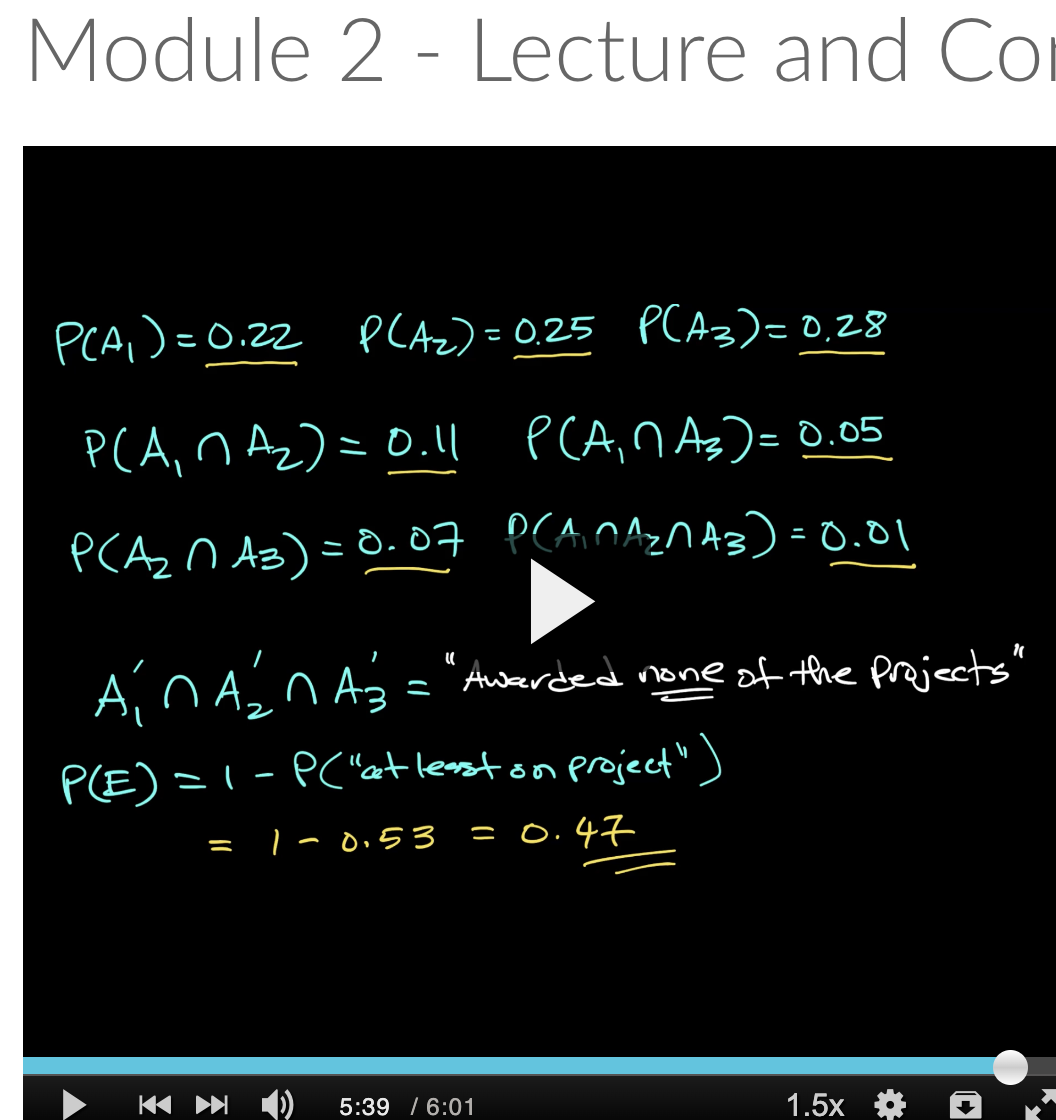 Module 2 - Lecture and Co
P(A₁) = 0.22 P(A₂) = 0.25 P(A₃) = 0.28
P(A₁ ∩ A₂) = 0.11 P(A₁ ∩ A₃) = 0.05
P(A₂ ∩ A₃) = 0.07 P(A₁ ∩ A₂ ∩ A₃) = 0.01
A₁′ ∩ A₂′ ∩ A₃′ = "Awarded none of the projects"
P(E) = 1 - P("at least on project")
= 1 - 0.53 = 0.47
5:39 / 6:01 1.5x